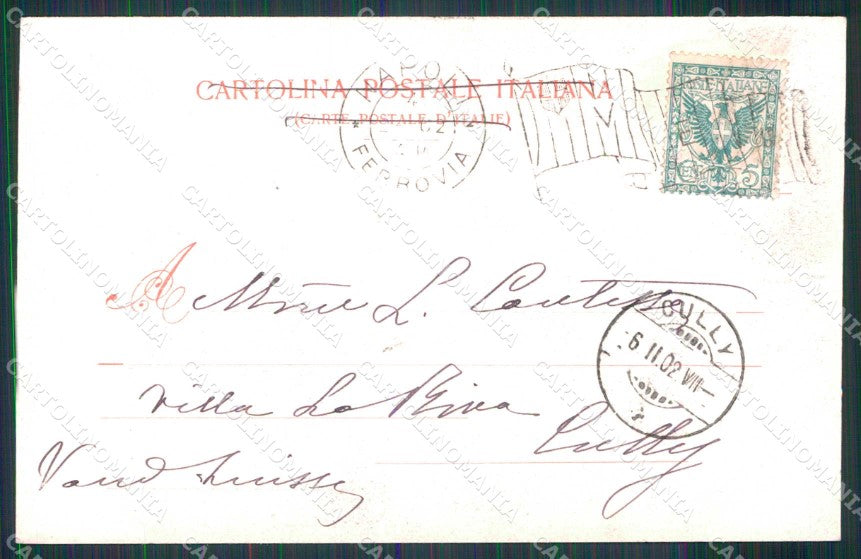 CARTOLINA POSTALE ITALIANA
(CARTE POSTALE D'ITALIE)
NAPOLI
FERROVIA
POSTE ITALIANE
CENT. 5
A Mme L.
CULLY
6 II 02 VII
Villa La Riva
Cully
Vaud Suisse
CARTOLINOMANIA